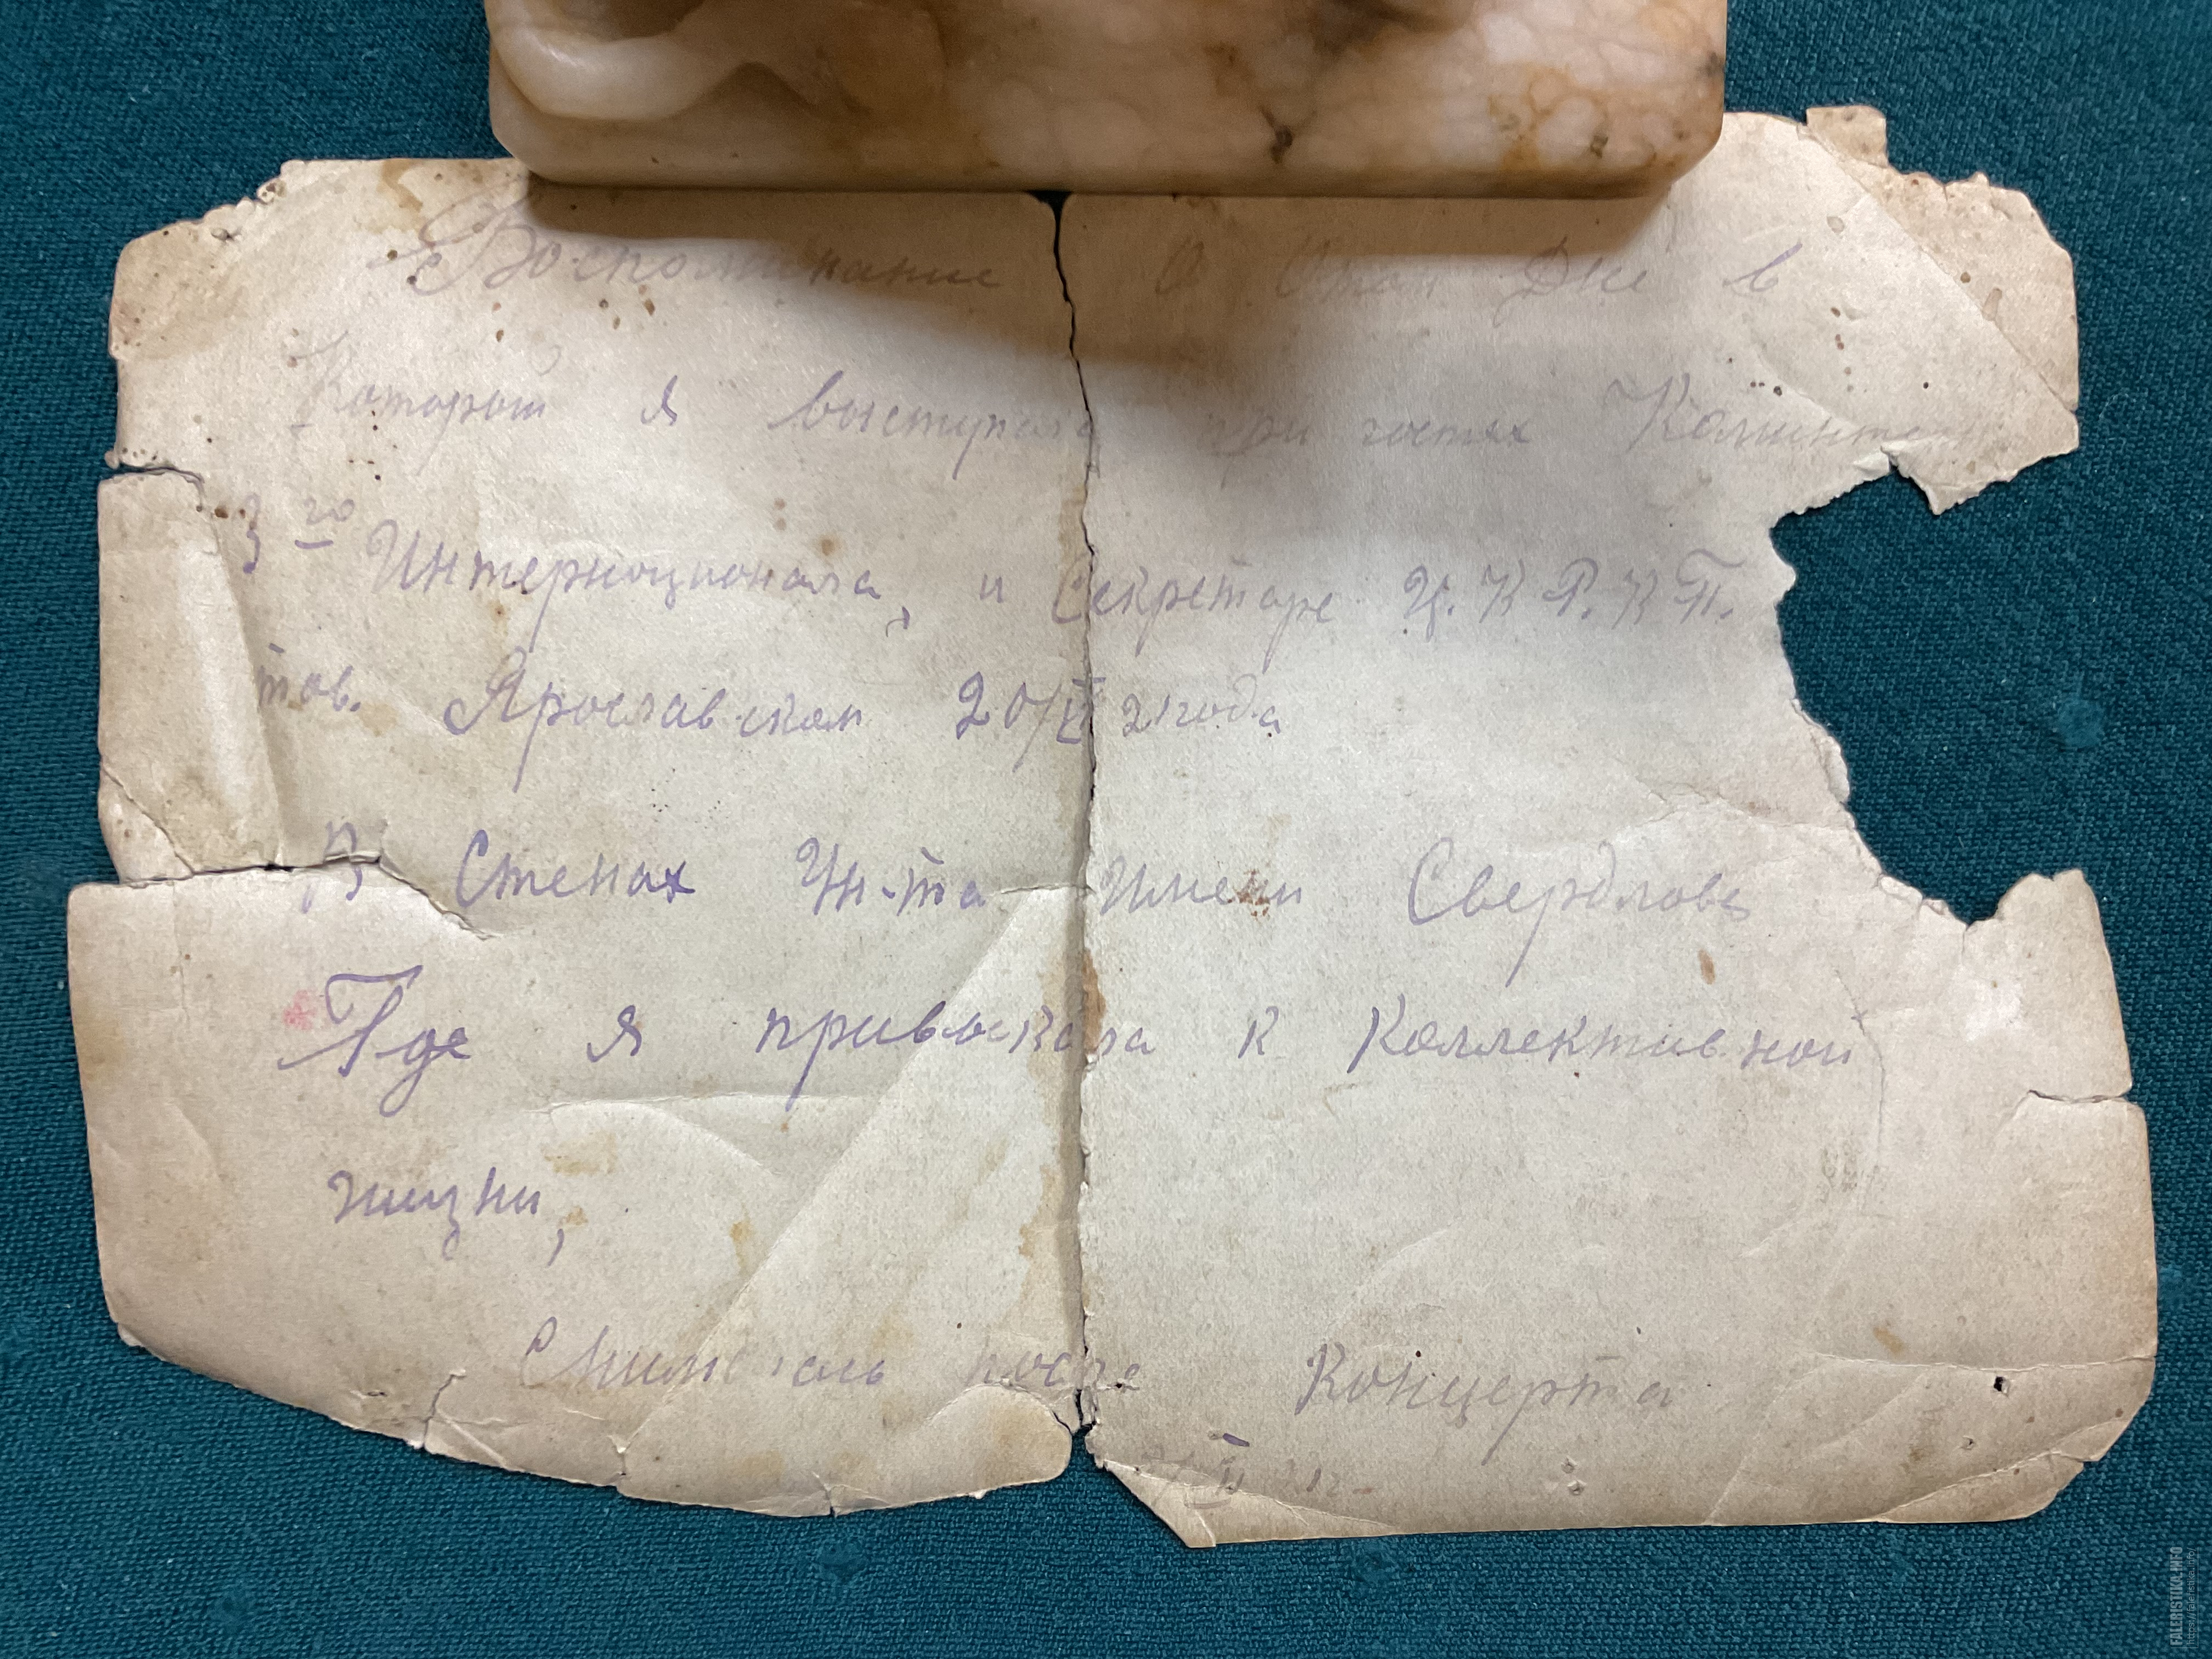 Воспоминание О Том Дне в
Которой я выступала при гостях
3го Интерноционала, и Секретаре Ц. К Р. К П.
тов. Ярославском 20/VI 21 года
В Стенах Ун-та Имени Свердлова
Где я привыкала к Коллективной
жизни,
Снимались после Концерта
21г.
FALERISTIKA.INFO